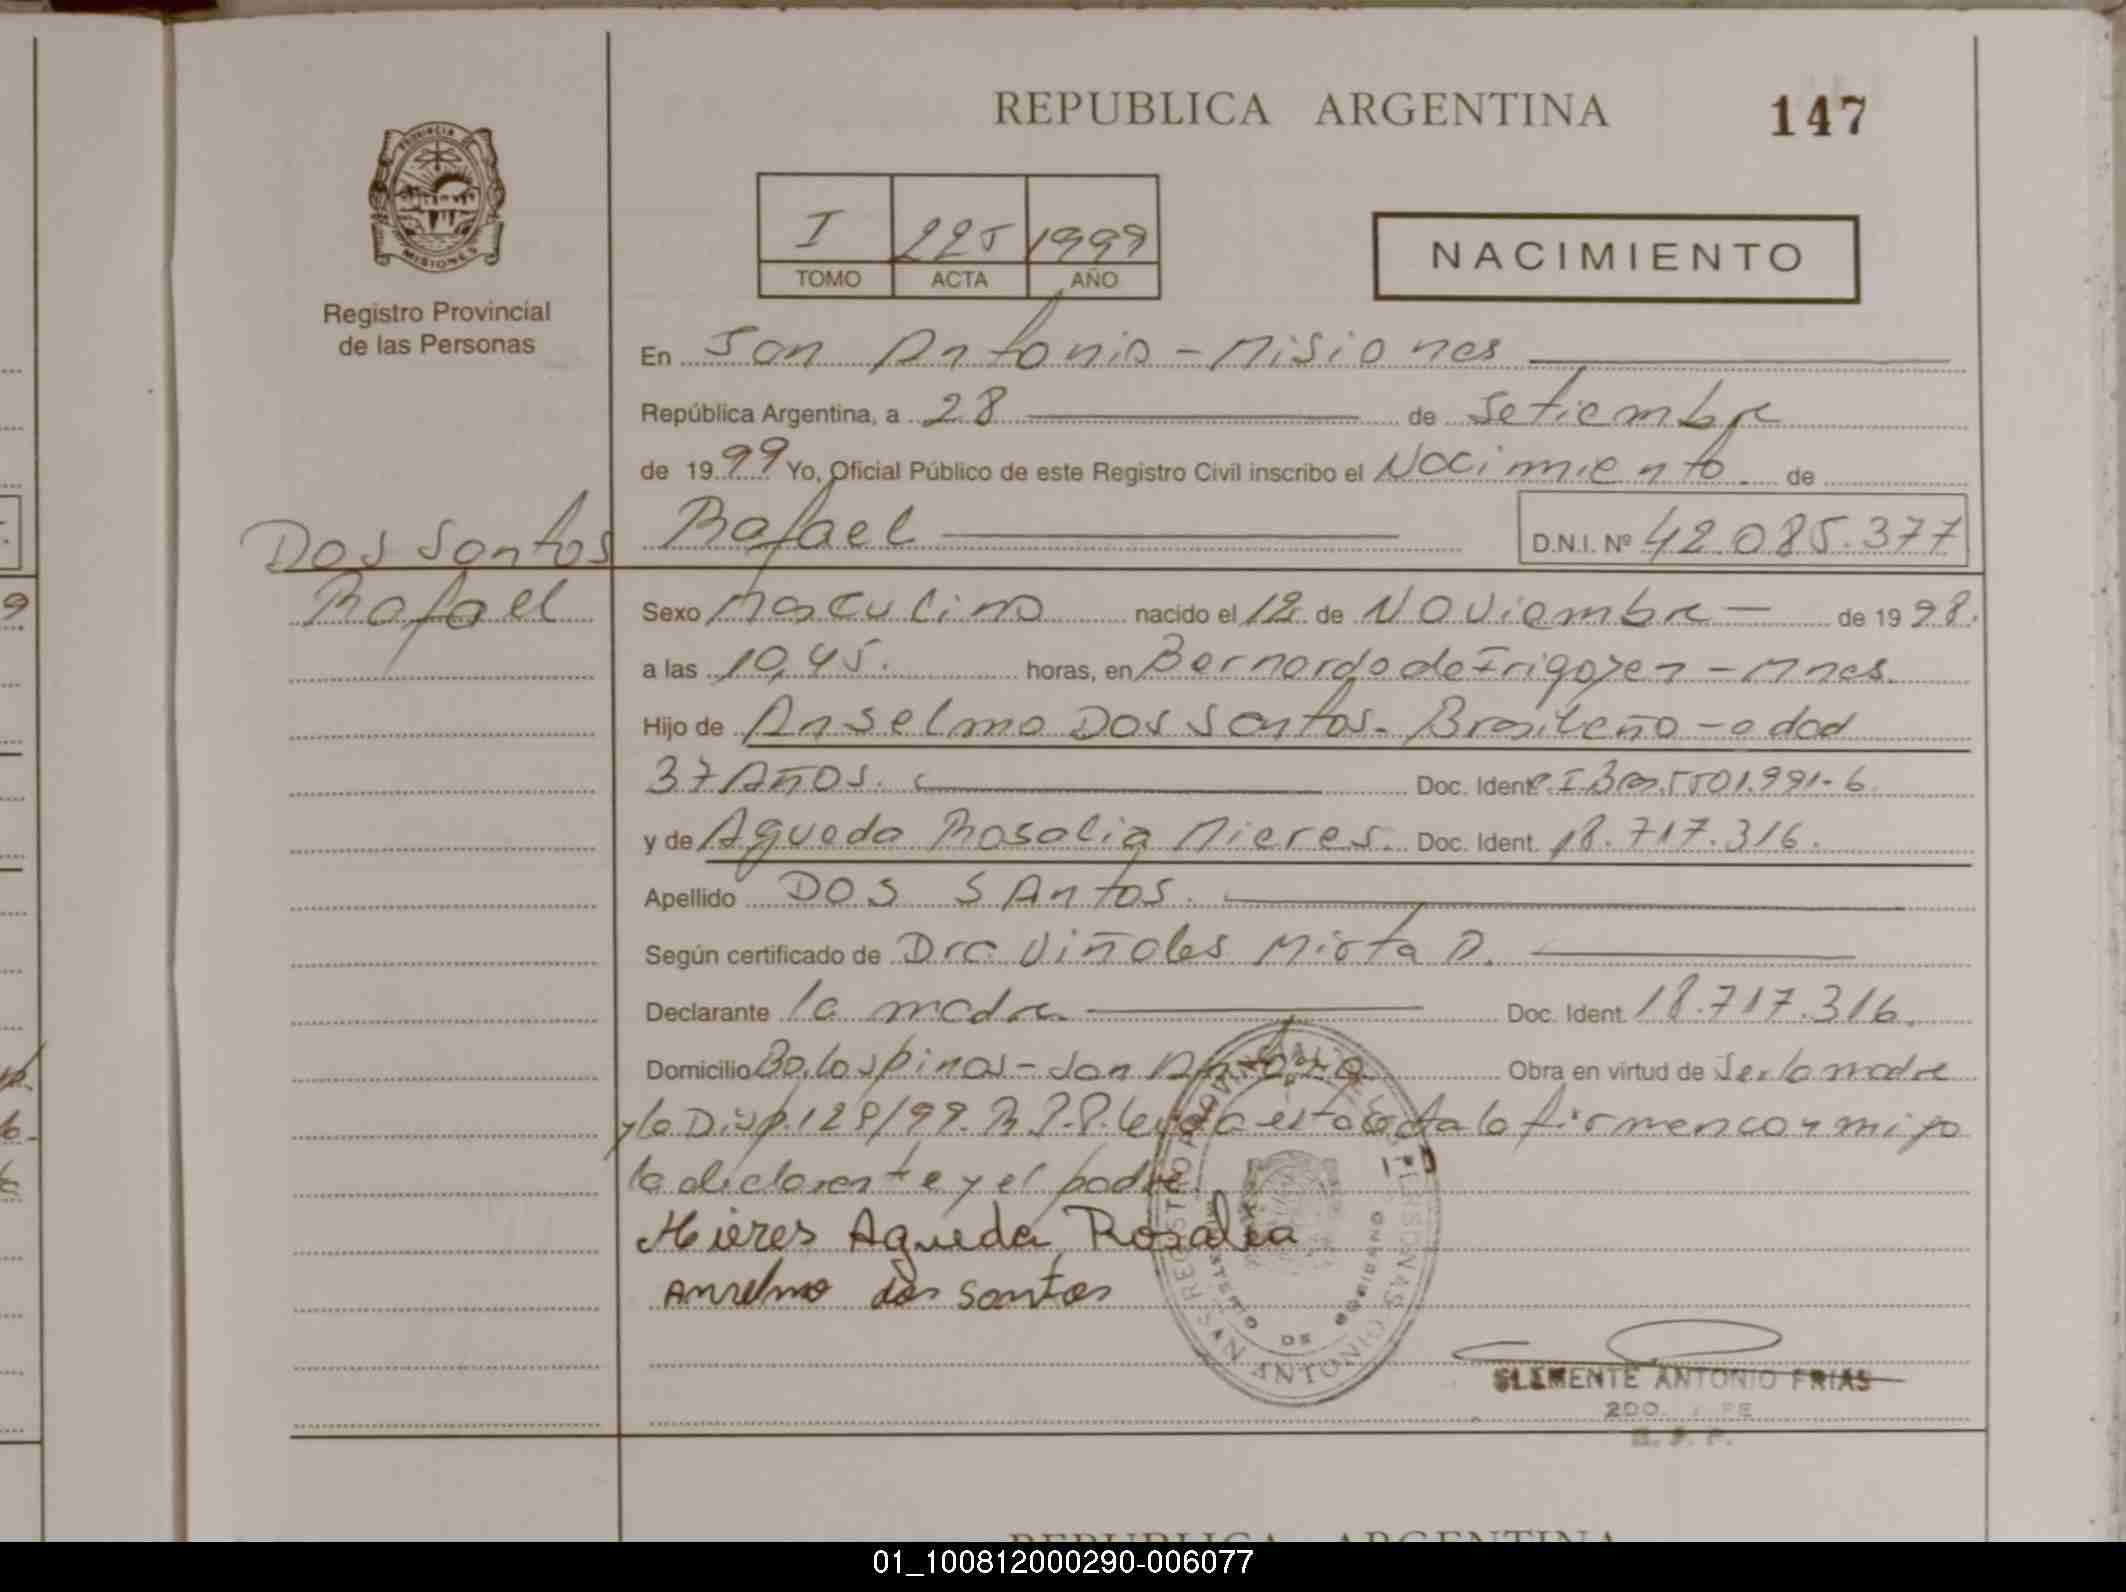 REPUBLICA ARGENTINA
147
PROVINCIA DE
MISIONES
Registro Provincial
de las Personas
I 225 1999
TOMO ACTA AÑO
NACIMIENTO
En San Antonio - Misiones
República Argentina, a 28 de Setiembre
de 1999 Yo, Oficial Público de este Registro Civil inscribo el Nacimiento de
Dos Santos
Rafael
Rafael D.N.I. Nº 42.085.377
Sexo Masculino nacido el 12 de Noviembre - de 1998.
a las 10,45. horas, en Bernardo de Irigoyen - Mnes.
Hijo de Anselmo Dos Santos. Brasileño - edad
37 Años. Doc. Ident. C.I Bra. 5501.991-6
y de Agueda Rosalia Mieres. Doc. Ident. 18.717.316.
Apellido DOS SAntos.
Según certificado de Dra. Viñales Mirta D.
Declarante la madre Doc. Ident. 18.717.316.
Domicilio Bo. los pinos - San Antonio Obra en virtud de ser la madre
y la Disp. 128/99. R.P.P. leyda esta acta la firmen conmigo
la declarante y el padre.
Mieres Agueda Rosalia
Anselmo dos santos
REGISTRO PROVINCIAL DE LAS PERSONAS
SAN ANTONIO
MINISTERIO DE GOBIERNO
CLEMENTE ANTONIO FRIAS
R. P. P.
REPUBLICA ARGENTINA
01_100812000290-006077